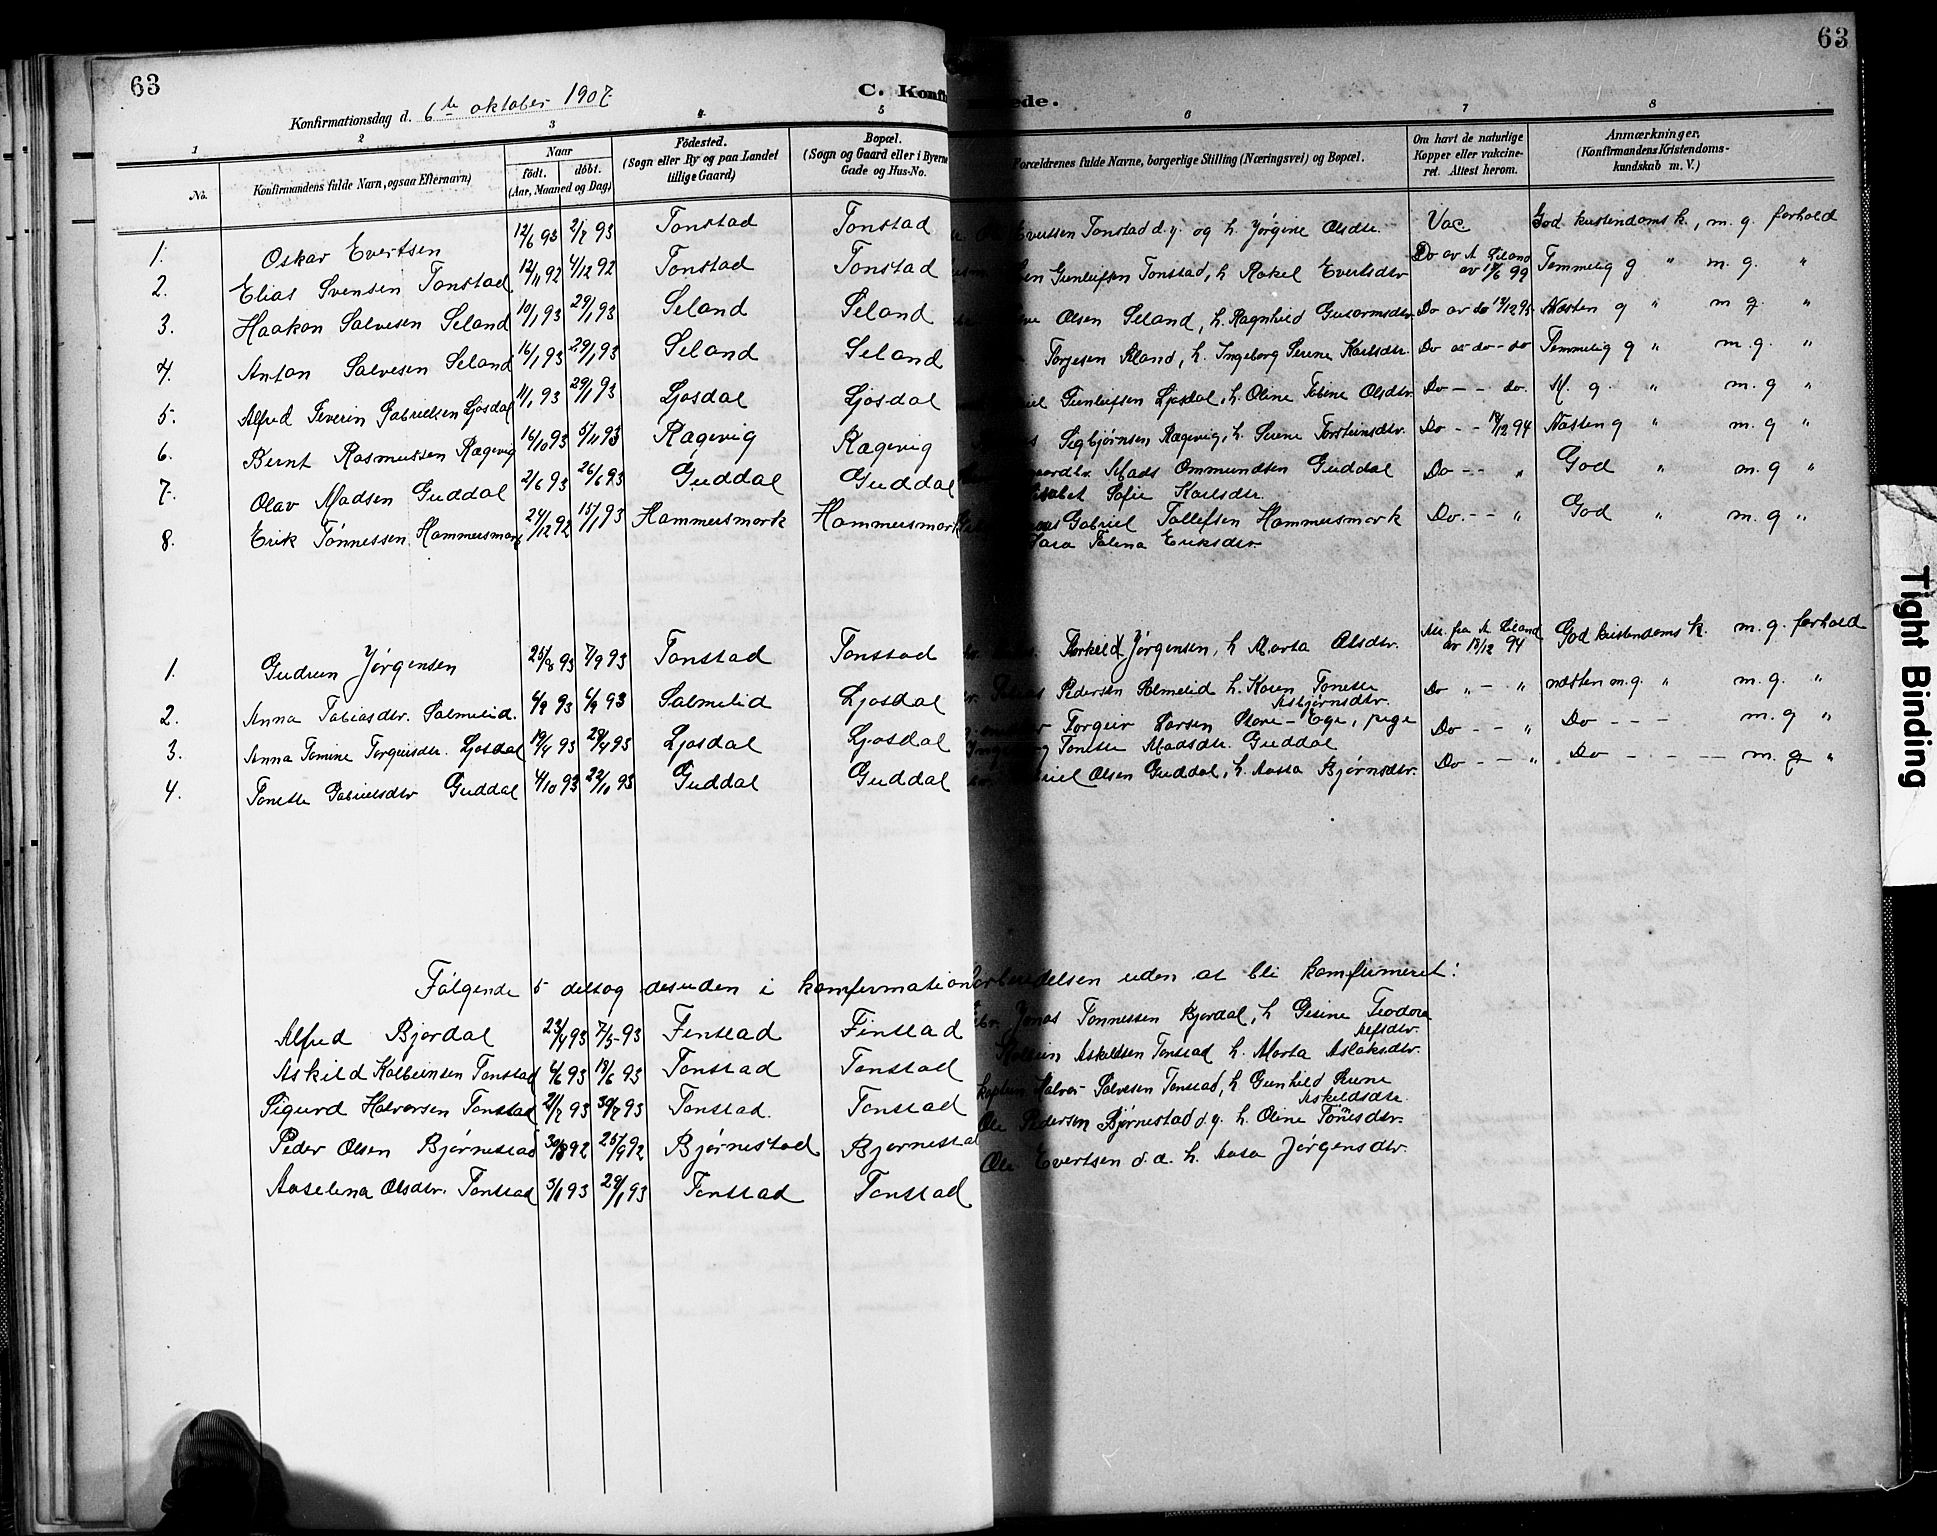 63
63
Konfirmationsdag d. 6te oktober 1907.
C. Konfi
ede.
1 2 3 4 5 6 7 8
No.
Konfirmandens fulde Navn, ogsaa Efternavn)
Naar
födt. döbt.
(Aar, Maaned og Dag)
Födested.
(Sogn eller By og paa Landet
tillige Gaard)
Bopæl.
(Sogn og Gaard eller i Byerne
Gade og Hus-No.
Forældrenes fulde Navne, borgerlige Stilling (Næringsvei) og Bopæl.
Om havt de naturlige
Kopper eller vakcine-
ret. Attest herom.
Anmærkninger,
(Konfirmandens Kristendoms-
kundskab m. V.)
1. Oskar Evertsen 12/6 93 2/7 93 Tonstad Tonstad Evertsen Tonstad d.y. og h. Jørgine Olsdtr. Vac God kristendoms k., m. g. forhold
2. Elias Svensen Tonstad 12/11 92 4/12 92 Tonstad Tonstad Gunleifsen Tonstad, h. Rakel Evertsdtr Do av A Liland av 18/6 99 Temmelig g " m. g. "
3. Haakon Salvesen Seland 10/1 93 29/1 93 Seland Seland Olsen Seland, h. Ragnhild Gutormsdtr Do av do 18/12 95 Næsten g " m g. "
4. Anton Salvesen Seland 16/1 93 29/1 93 Seland Seland Torjesen Seland, h. Ingeborg Serine Karlsdtr. Do av do - do Temmelig g " m. g. "
5. Alfred Severin Gabrielsen Ljosdal 11/1 93 29/1 93 Ljosdal Ljosdal Gunleifsen Ljosdal, h. Oline Tobine Olsdtr Do - - do. M. g. " m. g "
6. Bernt Rasmussen Rægevig 16/10 93 5/11 93 Rægevig Rægevig Sigbjørnsen Rægevig, h. Serine Torsteinsdtr. Do - - 18/12 94 Næsten g " m. g "
7. Olav Madsen Guddal 2/6 93 26/6 93 Guddal Guddal Mads Ommundsen Guddal Do - - " God " m. g "
Sofie Karlsdtr.
8. Erik Tønnessen Hammersmark 24/12 92 15/1 93 Hammersmark Hammersmark Gabriel Tollefsen Hammersmark Do. - - " God " m. g "
Sara Talena Eriksdtr.
1. Gudrun Jørgensen 25/8 93 7/9 93 Tonstad Tonstad Torkild Jørgensen, h Marta Olsdtr. Att. fra A. Liland av 18/12 94 God kristendoms k. m. g. forhold
2. Anna Tobiasdtr. Salmelid. 4/8 93 6/9 93 Salmelid Ljosdal Pedersen Salmelid h. Karen Tonette Asbjørnsdtr. Do " - " næsten m. g. " m. g. "
3. Anna Tomine Torgeirsdtr. Ljosdal 19/4 93 29/4 93 Ljosdal Ljosdal Torgeir Larsen Store-Ege, pige Do - - " Do - - - m. g "
Tonette Madsdtr. Guddal
4. Tonette Gabrielsdtr Guddal 4/10 93 22/10 93 Guddal Guddal Olsen Guddal, h. Aasa Bjørnsdtr. Do - - " Do - - - m. g "
Følgende 5 deltog desuden i konfirmationforberedelsen uden at bli konfirmeret:
Alfred Bjordal 23/4 93 7/5 93 Finstad Finstad Jonas Tonnessen Bjordal, h Gesine Teodora Alfsdtr.
Askild Kolbeinsen Tonstad 4/6 93 18/6 93 Tonstad Tonstad Kolbein Askildsen Tonstad h. Marta Aslaksdtr.
Sigurd Halvorsen Tonstad 21/7 93 30/7 93 Tonstad. Tonstad Halvor Salvesen Tonstad, h. Gunhild Serine Askildsdtr.
Peder Olsen Bjørnestad 30/8 92 25/9 92 Bjørnestad Bjørnestad Ole Pedersen Bjørnestad d.y. h. Oline Tønnesdtr.
Aaselena Olsdtr. Tonstad 3/1 93 29/1 93 Tonstad Tonstad Ole Evertsen d. æ. h. Aasa Jørgensdtr.
Tight Binding